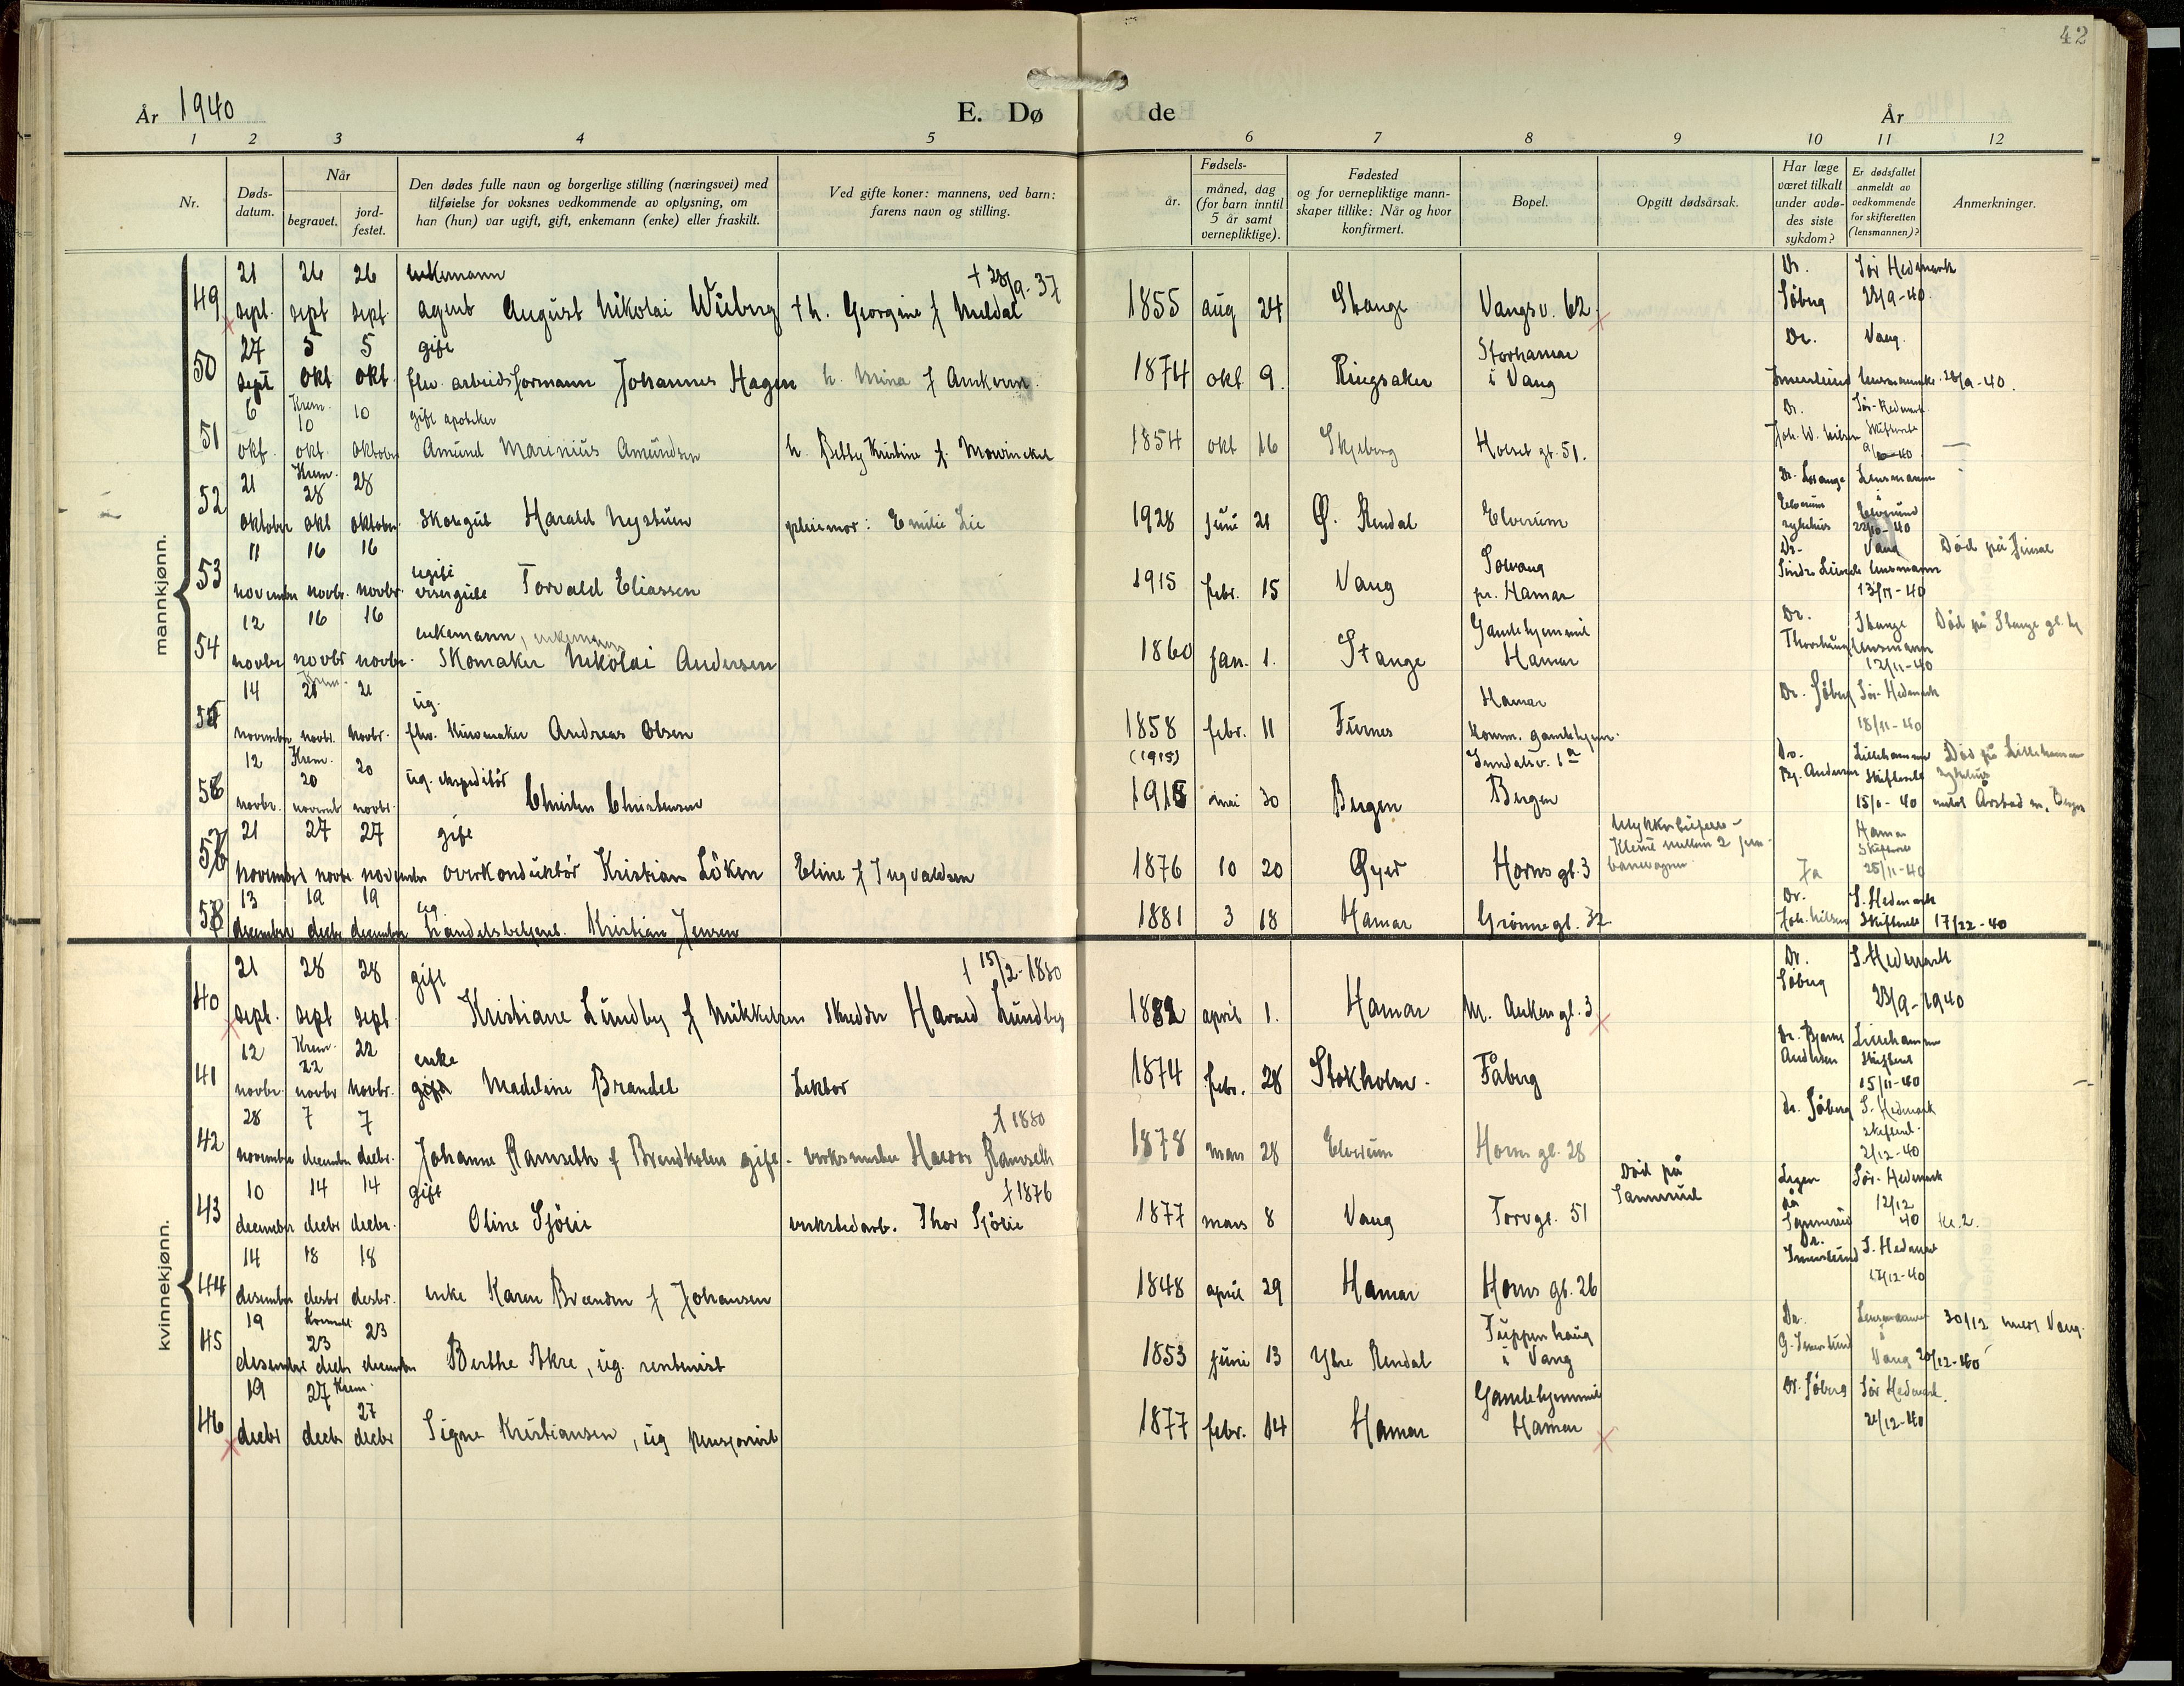 42
År 1940
E. Dø de
År
1 2 3 4 5 6 7 8 9 10 11 12
Nr.
Døds-
datum.
Når
begravet.
jord-
festet.
Den dødes fulle navn og borgerlige stilling (næringsvei) med
tilføielse for voksnes vedkommende av oplysning, om
han (hun) var ugift, gift, enkemann (enke) eller fraskilt.
Ved gifte koner: mannens, ved barn:
farens navn og stilling.
Fødsels-
år.
måned, dag
(for barn inntil
5 år samt
vernepliktige).
Fødested
og for vernepliktige mann-
skaper tillike: Når og hvor
konfirmert.
Bopel.
Opgitt dødsårsak.
Har læge
været tilkalt
under avdø-
des siste
sykdom?
Er dødsfallet
anmeldt av
vedkommende
for skifteretten
(lensmannen)?
Anmerkninger.
mannkjønn.
21 26 26 enkemann † 28/9-37 Dr. Sør Hedmark
49 sept. sept sept. agent August Nikolai Wiiberg † h. Georgine f Muldal 1855 aug 24 Stange Vangsv. 62 Søberg 23/9-40
27 5 5 gift Storhamar Dr. Vang
50 sept okt okt. flw. arbeidsformann Johannes Hagen h. Mina f Ankerm. 1874 okt 9. Ringsaker i Vang Imerslund 28/9-40.
6 Krem. 10 10 gift apoteker Dr. Sør-Hedmark
51 okt. okt. oktober Amund Marinius Amundsen h. Betzy Kristine f. Mowinckel 1854 okt 16 Skjeberg Holset gt. 51. Joh. W. Nilsen Skifterett
21 Krem. 28 28 Dr. Lensmann
52 oktober okt oktober. skolegut Harald Nystuen pleiemor: Emilie Lie 1928 juni 21 Ø. Rendal Elverum Elverum sykehus i Elverum 22/10-40
11 16 16 ugift Solvang Dr. Vang Død på
53 november novbr. novbr. visergutt Torvald Eliassen 1915 febr. 15 Vang pr. Hamar lensmann 13/11-40
12 16 16 enkemann, enkemann Gamlehjemmet Dr. Stange Død på Stange gl. hj
54 novbr novbr novbr. Skomaker Nikolai Andersen 1860 jan. 1. Stange Hamar lensmann 12/11-40
14 Krem. 21 21 ug. Hamar Dr. Søberg Sør-Hedmark
55 november novbr. novbr. flw. Andreas Olsen 1858 febr. 11 Furnes komm. gamlehjem. 18/11-40
12 Krem. 20 20 ug. ekspeditør (1915) 1a Dr. Lillehammer Død på Lillehammer
56 novbr. novemb novbr. Christen Christensen 1915 mai 30 Bergen Bergen Bj. Andersen Skifterett sykehus 15/11-40
21 27 27 gift Ulykkestilfelle - Hamar
57 november novbr. november overkonduktør Kristian Löken Eline f Ingvaldsen 1876 10 20 Øyer Horns gt. 3 Klemt mellem 2 jern-
banevogner. Ja Skifterett 25/11-40
13 19 19 ug. Dr. S. Hedmark
58 december decbr december handelsbetjent. Kristian Jensen 1881 3 18 Hamar Grønne gt. 32 Joh. Nilsen Skifterett 17/12-40
kvinnekjønn.
21 28 28 gift f 15/2-1880 Dr. S. Hedmark
40 sept. sept sept. Kristiane Lundby f Mikkelsen skredder Harald Lundby 1882 april 1. Hamar N. Anken gt. 3 Søberg 23/9-1940
12 Krem. 22 22 enke Dr. Bjarne Lillehammer
41 novbr. novbr novbr. gift Madeleine Brandel Lektor 1874 febr. 28 Stokholm. Fåberg Andersen Skifterett 15/11-40
28 7 7 f 1880 Dr. Søberg S. Hedmark
42 november december decbr. Johanne Ramseth f Brendholen gift - verksmester Ramseth 1878 mars 28 Elverum Horns gt. 28 skifterett. 2/12-40
10 14 14 gift f 1876 Død på Legen Sør-Hedmark
43 december decbr decbr. Oline Sjölie verkstedarb. Thor Sjölie 1877 mars 8 Vang Torvgt. 51 Sannerud på Sannerud 12/12 40 kl. 2.
14 18 18 Dr. S. Hedmark
44 desember desbr desbr. enke Karen Brænden f Johansen 1848 april 29 Hamar Horns gt. 26 Imerslund 17/12-40
19 Kremert 23 23 Tuppenhaug Dr. Lensmannen 30/12 Vang.
45 desember decbr december Berthe Akre, ug. rentenist 1853 juni 13 Ytre Rendal i Vang G. Imerslund i Vang 20/12-40
19 27 Krem. 27 Gamlehjemmet Dr. Søberg Sør Hedmark.
46 decbr decbr decbr Signe Kristiansen, ug pensjonist 1877 febr. 14 Hamar Hamar 21/12-40